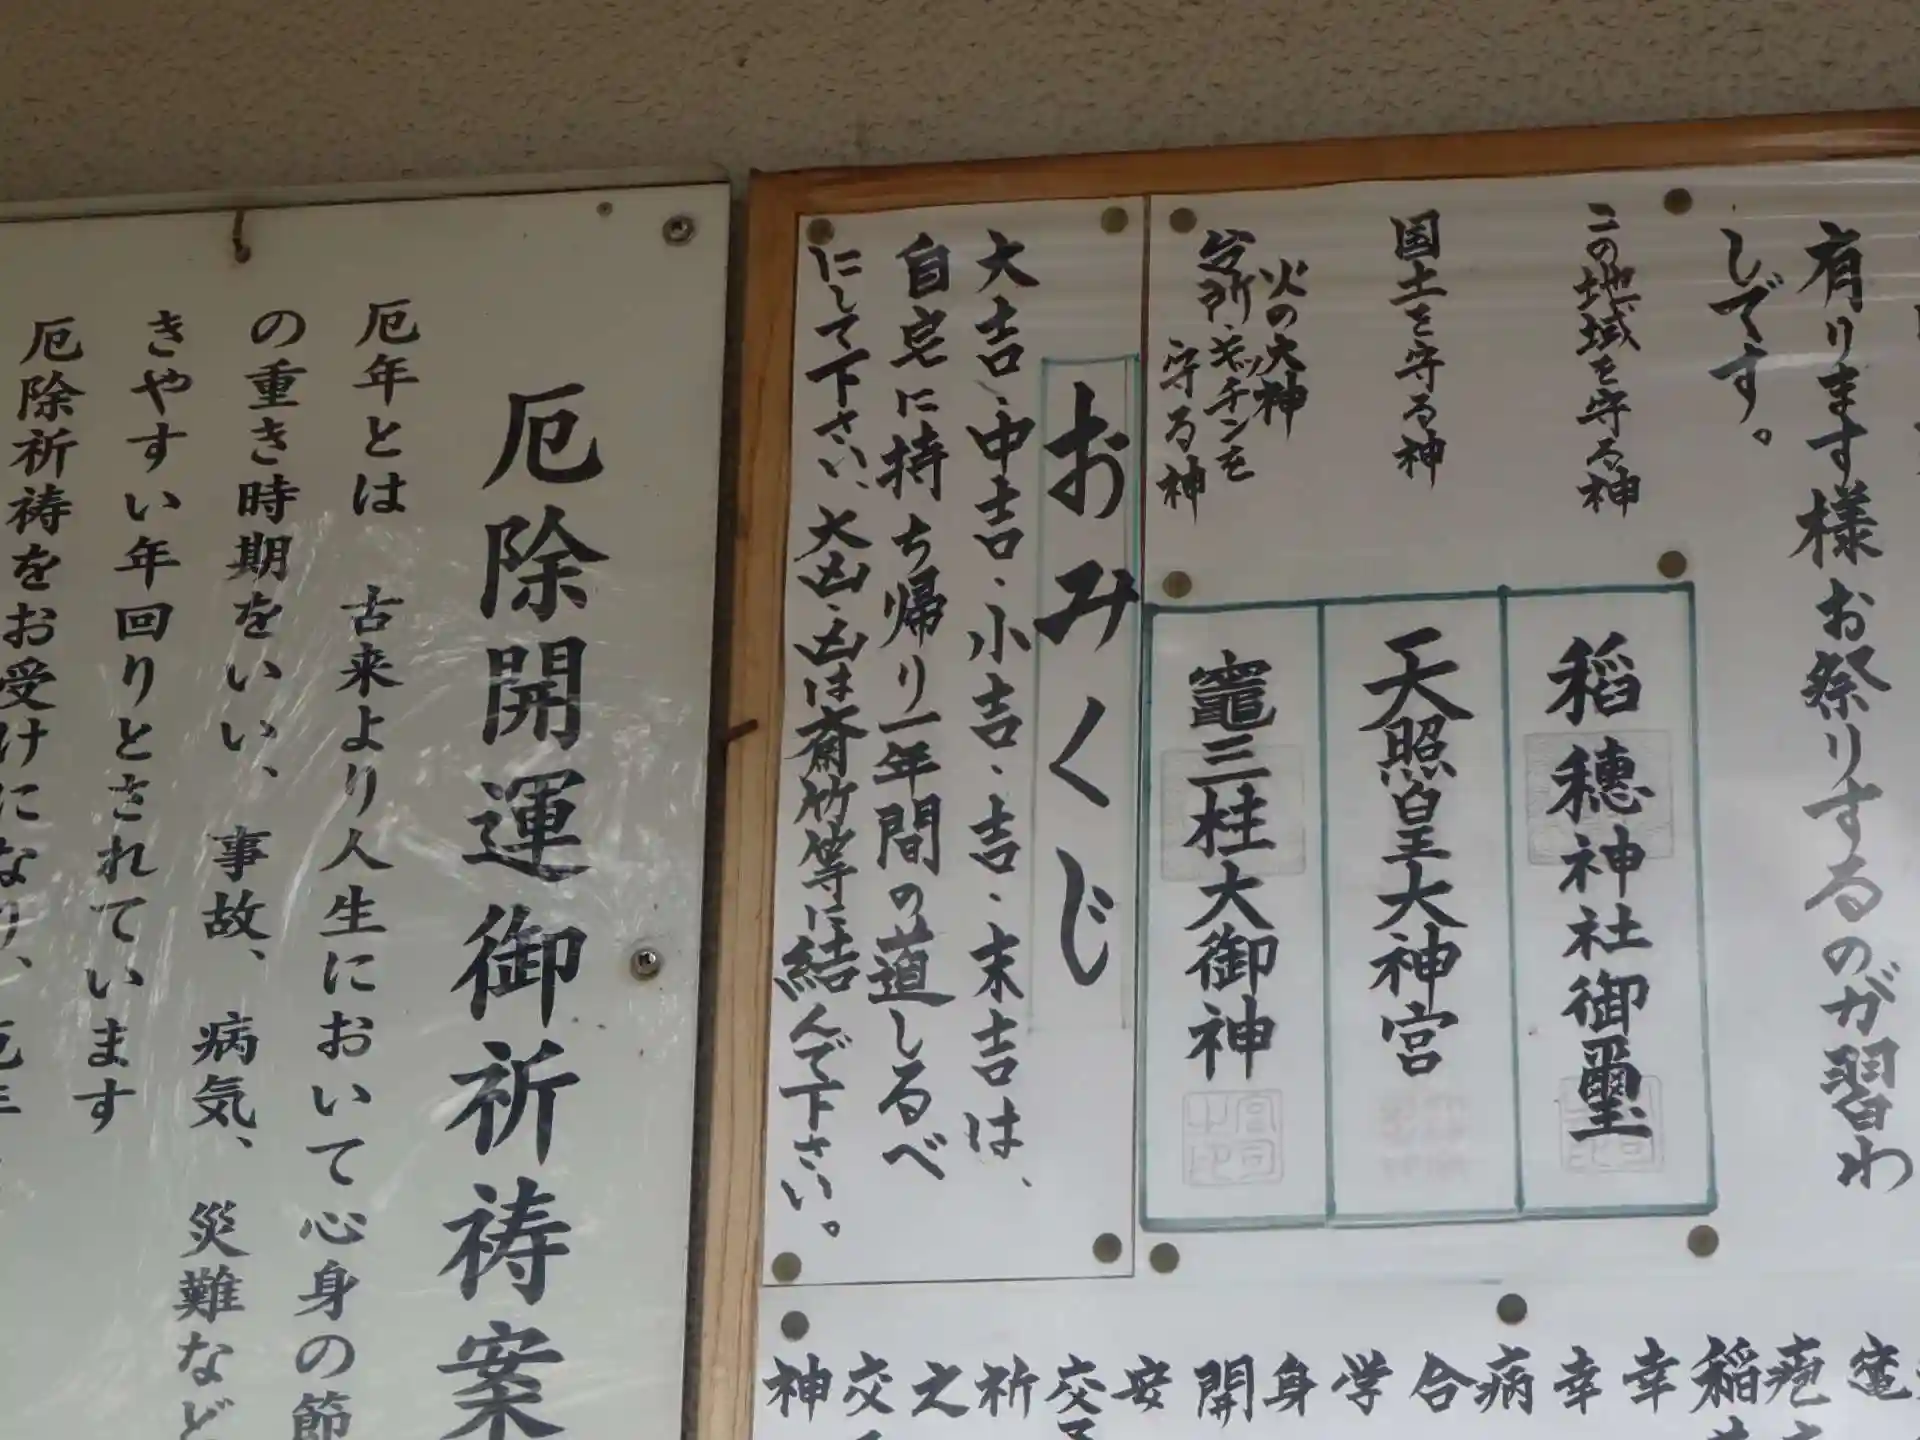 有ります様お祭りするのガ習わ
しです。
この地域を守る神
稲穂神社御璽
国土を守る神
天照皇大神宮
火の大神
台所・キッチンを
守る神
竈三柱大御神
おみくじ
大吉・中吉・小吉・吉・末吉は、
自宅に持ち帰り一年間の道しるべ
にして下さい、大凶・凶は斎竹等に結んで下さい。
竈
疱
稲
幸
幸
病
合
学
身
開
安
交
祈
之
交
神
厄除開運御祈祷案
厄年とは 古来より人生において心身の節
の重き時期をいい、事故、病気、災難など
きやすい年回りとされています
厄除祈祷をお受けになり、厄年